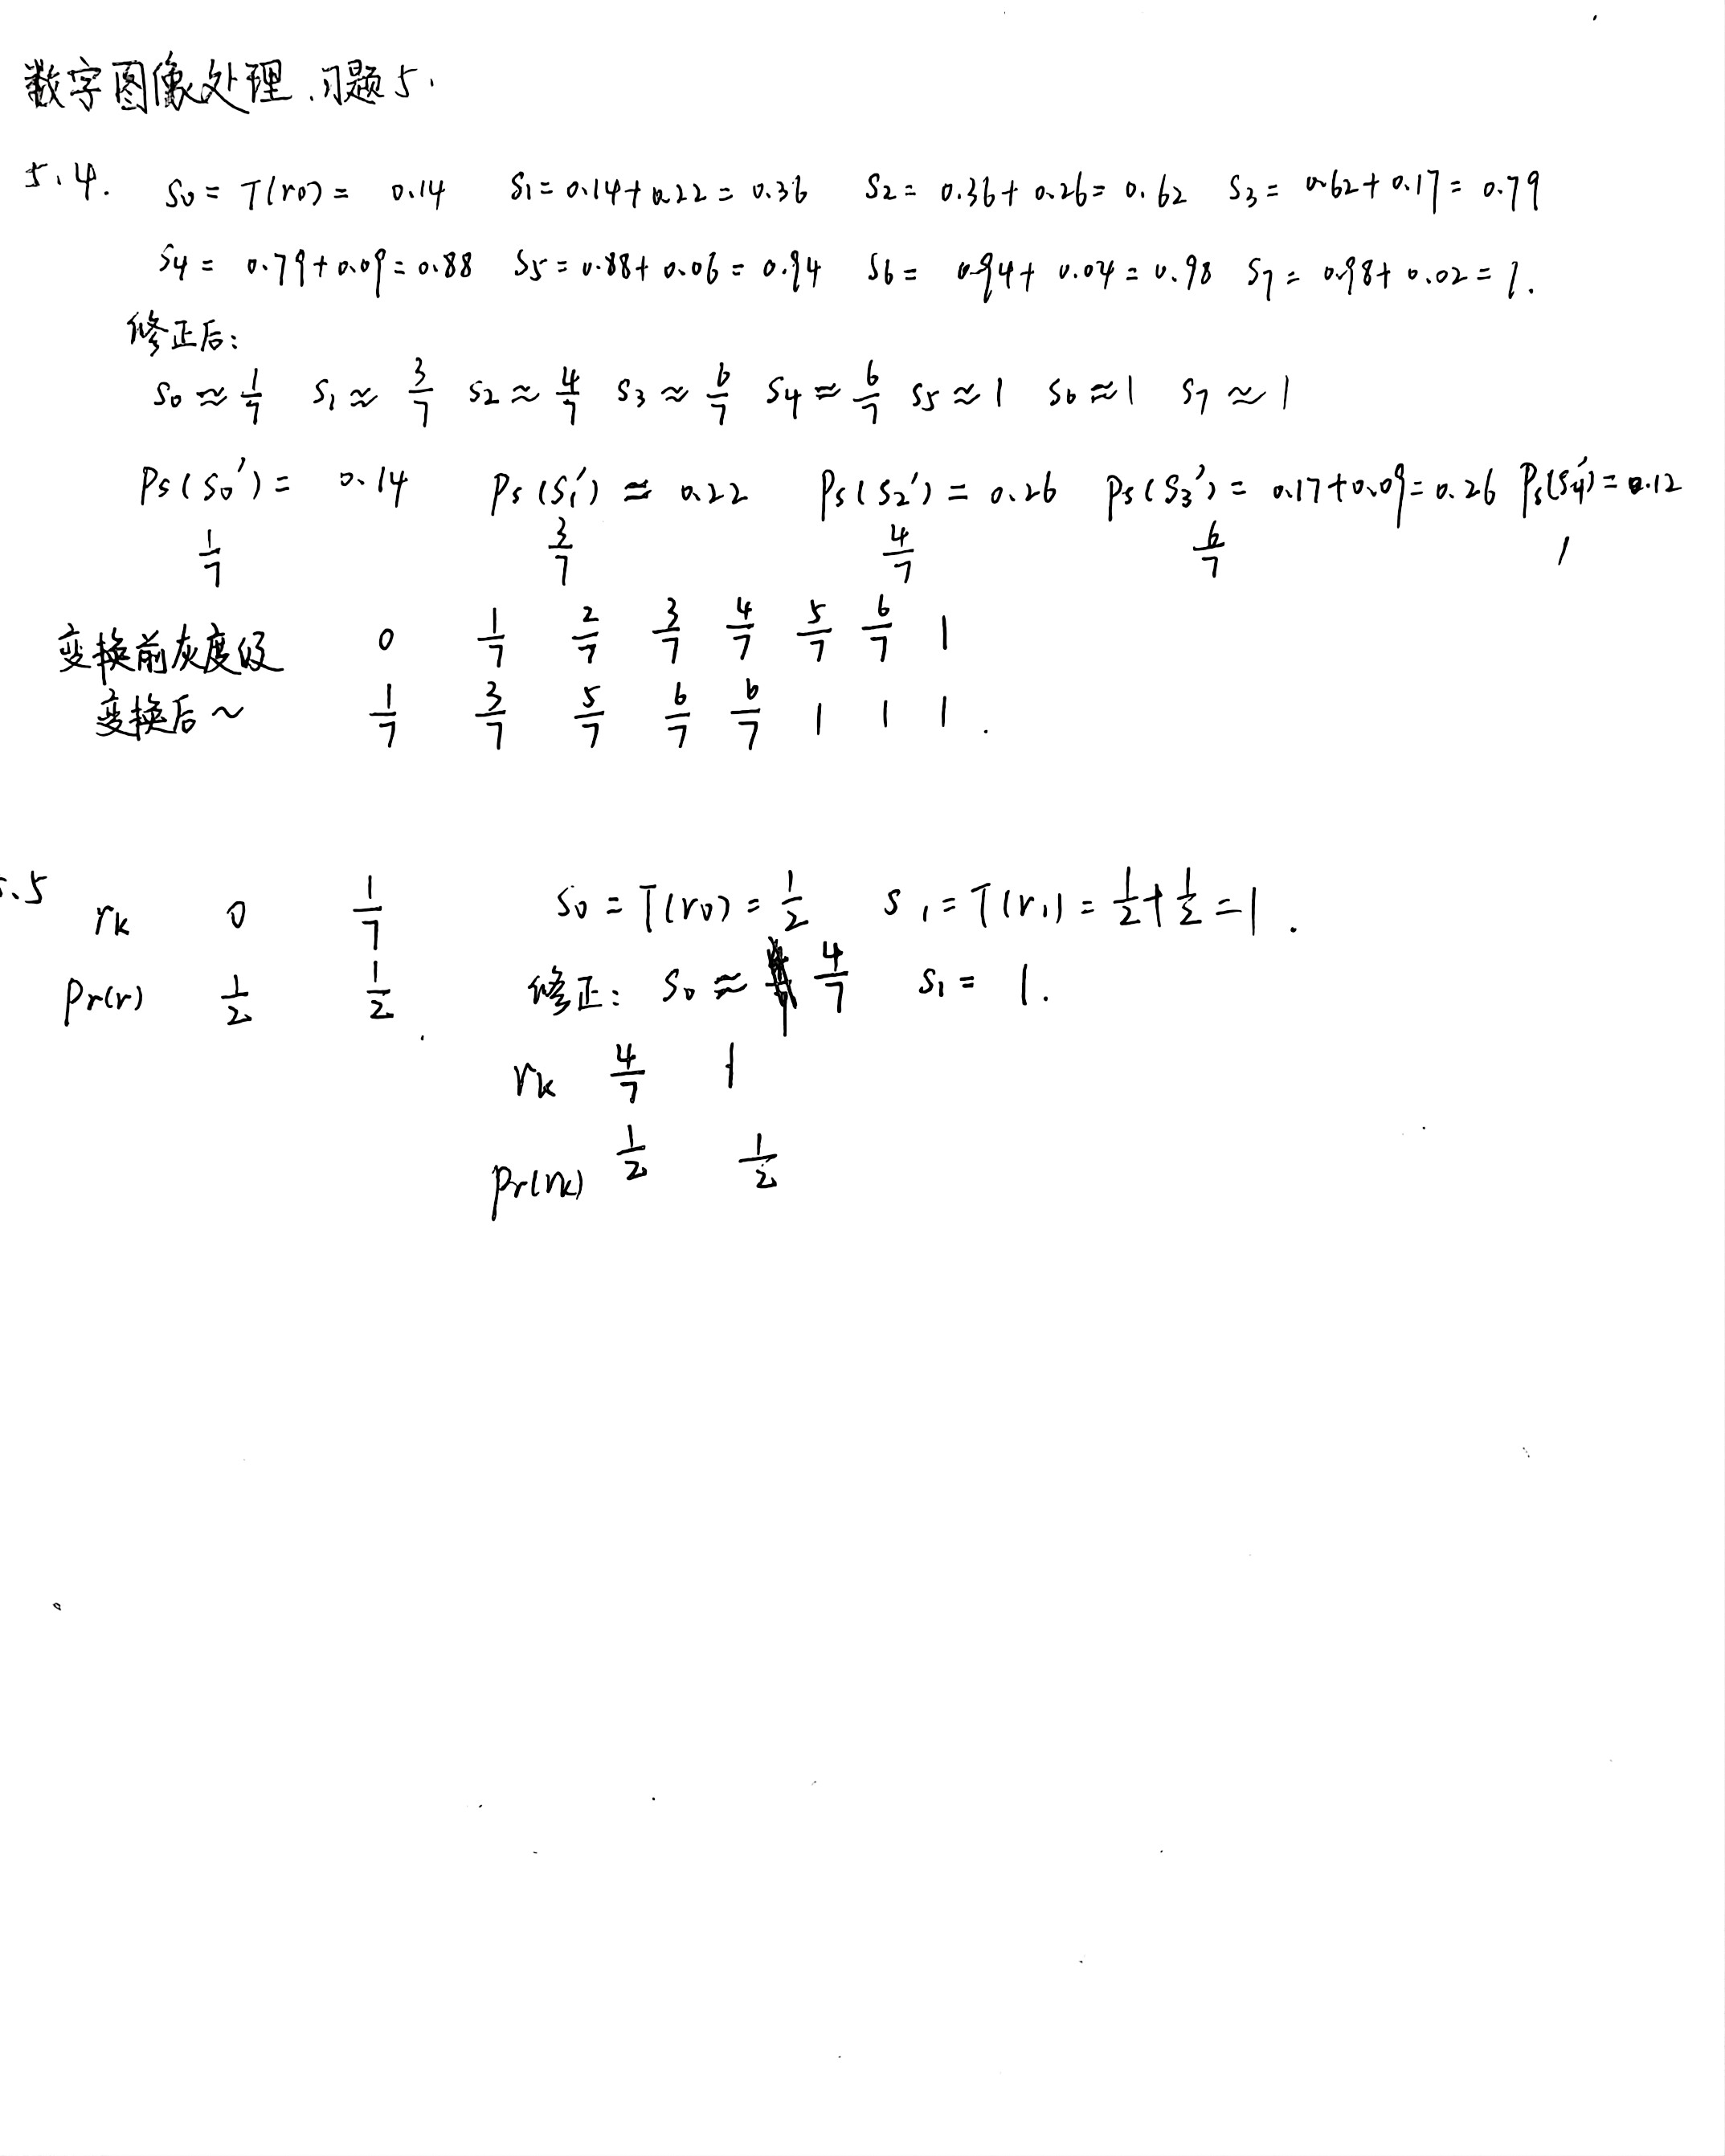 数字图像处理.习题5.
5.4. S0 = T(r0) = 0.14 S1 = 0.14+0.22 = 0.36 S2 = 0.36+0.26 = 0.62 S3 = 0.62+0.17 = 0.79
S4 = 0.79+0.09 = 0.88 S5 = 0.88+0.06 = 0.94 S6 = 0.94+0.04 = 0.98 S7 = 0.98+0.02 = 1.
修正后:
S0 ≈ 1/7 S1 ≈ 3/7 S2 ≈ 4/7 S3 ≈ 6/7 S4 ≈ 6/7 S5 ≈ 1 S6 ≈ 1 S7 ≈ 1
Ps(S0') = 0.14 Ps(S1') = 0.22 Ps(S2') = 0.26 Ps(S3') = 0.17+0.09 = 0.26 Ps(S4') = 0.12
1/7 3/7 4/7 6/7 1
变换前灰度级 0 1/7 2/7 3/7 4/7 5/7 6/7 1
变换后~ 1/7 3/7 5/7 6/7 6/7 1 1 1.
.5 rk 0 1/7 S0 = T(r0) = 1/2 S1 = T(r1) = 1/2+1/2 = 1.
Pr(r) 1/2 1/2. 修正: S0 ≈ 4/7 S1 = 1.
rk 4/7 1
Pr(rk) 1/2 1/2